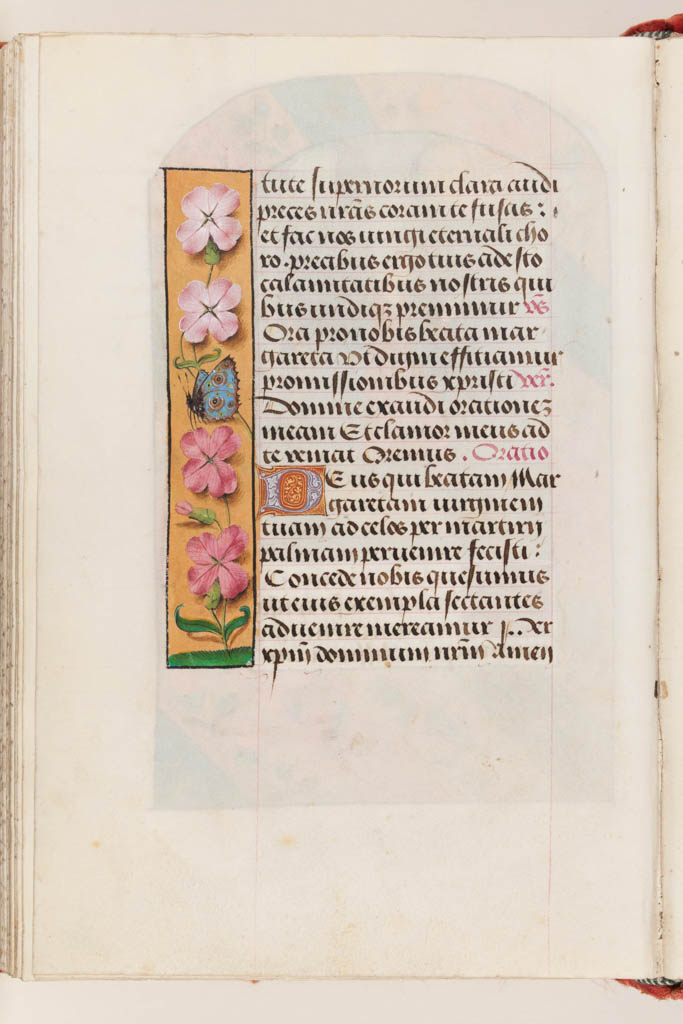 tute supernorum clara audi
preces nr̄as coram te fusas :
et fac nos iungi eternali cho
ro . precibus ergo tuis adesto
calamitatibus nostris qui
bus undiqꝫ premimur vs̄
Ora pro nobis beata mar
gareta Vt digni effitiamur
promissionibus xp̄risti ver̄.
Domine exaudi orationeꝫ
meam Et clamor meus ad
te veniat Oremus . Oratio
DEus qui beatam Mar
garetam uirginem
tuam ad celos per martirii
palmam peruenire fecisti :
Concede nobis quesumus
ut eius exempla sectantes
aduenire mereamur . Per
xp̄m̄ dominum nr̄m̄ Amen